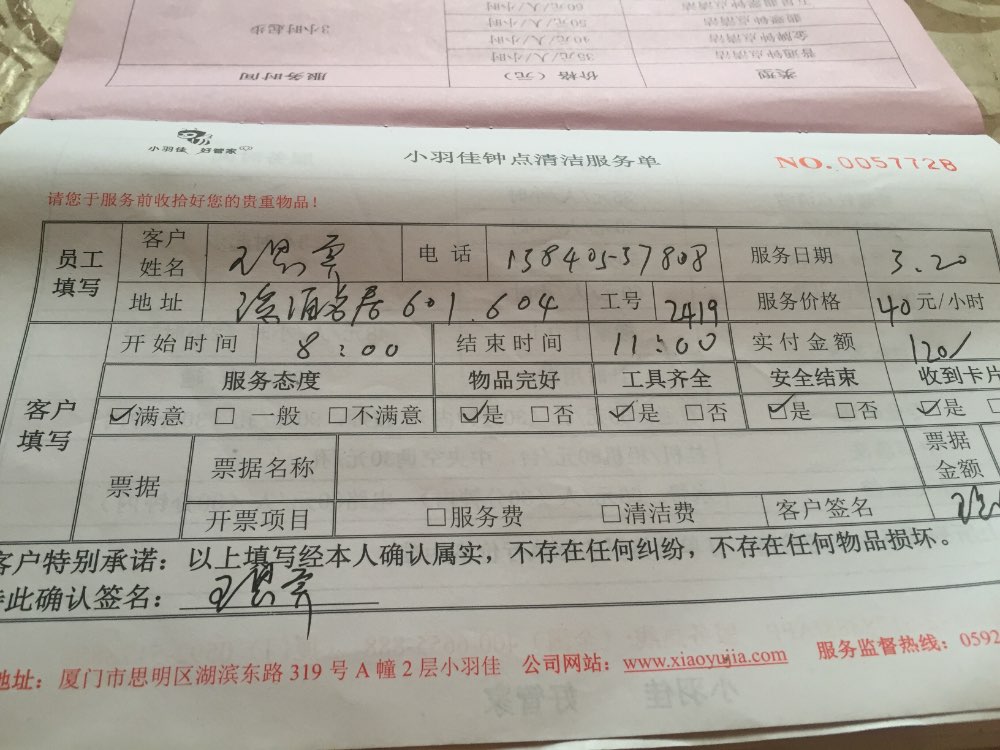 五星翡翠钟点清洁 60元/人/小时
翡翠钟点清洁 50元/人/小时
金牌钟点清洁 40元/人/小时 3小时起步
普通钟点清洁 35元/人/小时
类型 价格（元） 服务时间
小羽佳 好管家
小羽佳钟点清洁服务单
NO.0057728
请您于服务前收拾好您的贵重物品！
员工填写 客户姓名 电话 13840537808 服务日期 3.20
地址 601.604 工号 2419 服务价格 40元/小时
客户填写 开始时间 8:00 结束时间 11:00 实付金额 120/
服务态度 物品完好 工具齐全 安全结束 收到卡片
☑满意 □一般 □不满意 ☑是 □否 ☑是 □否 ☑是 □否 ☑是
票据 票据名称 票据金额
开票项目 □服务费 □清洁费 客户签名
客户特别承诺：以上填写经本人确认属实，不存在任何纠纷，不存在任何物品损坏。
特此确认签名：
地址：厦门市思明区湖滨东路319号A幢2层小羽佳 公司网站：www.xiaoyujia.com 服务监督热线：0592